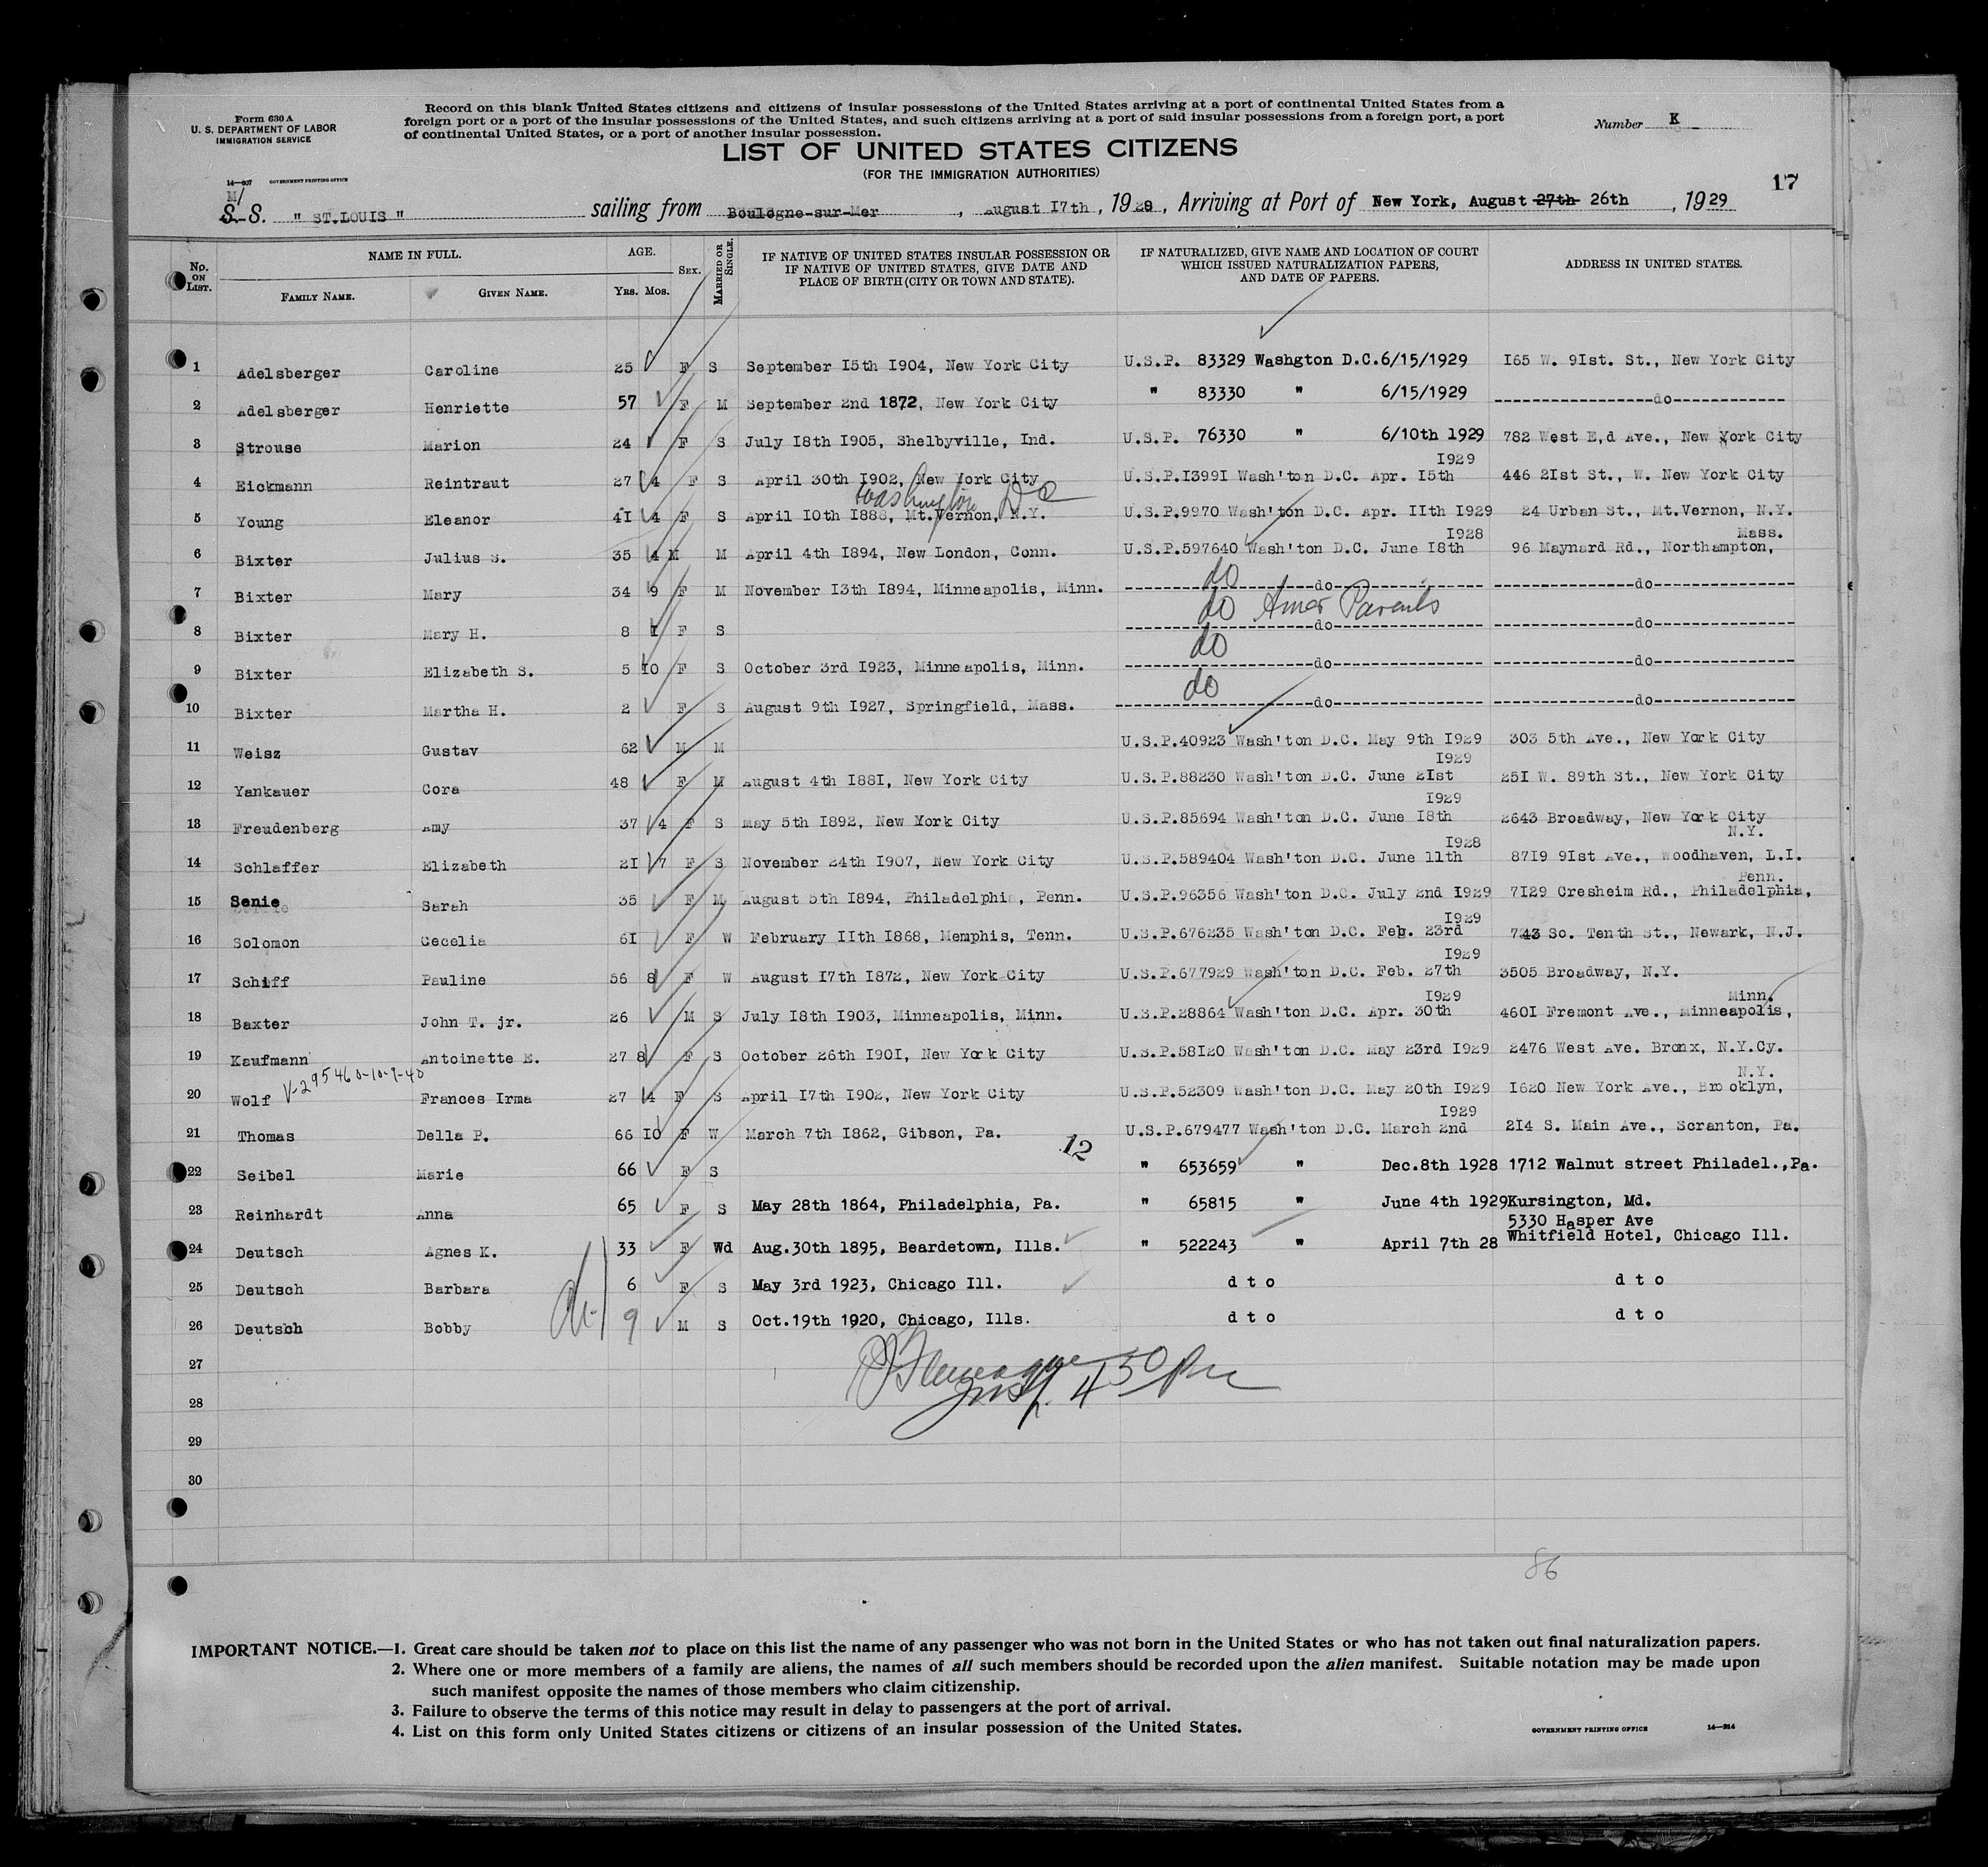 Form 630 A
U. S. DEPARTMENT OF LABOR
IMMIGRATION SERVICE
14—607 GOVERNMENT PRINTING OFFICE
Record on this blank United States citizens and citizens of insular possessions of the United States arriving at a port of continental United States from a
foreign port or a port of the insular possessions of the United States, and such citizens arriving at a port of said insular possessions from a foreign port, a port
of continental United States, or a port of another insular possession.
Number K
LIST OF UNITED STATES CITIZENS
(FOR THE IMMIGRATION AUTHORITIES)
17
M/
S. S. " ST.LOUIS " sailing from Boulogne-sur-Mer, August I7th, 1929, Arriving at Port of New York, August 27th 26th, 1929
No. ON LIST. NAME IN FULL. AGE. SEX. MARRIED OR SINGLE. IF NATIVE OF UNITED STATES INSULAR POSSESSION OR IF NATIVE OF UNITED STATES, GIVE DATE AND PLACE OF BIRTH (CITY OR TOWN AND STATE). IF NATURALIZED, GIVE NAME AND LOCATION OF COURT WHICH ISSUED NATURALIZATION PAPERS, AND DATE OF PAPERS. ADDRESS IN UNITED STATES.
FAMILY NAME. GIVEN NAME. YRS. MOS.
1 Adelsberger Caroline 25 F S September I5th I904, New York City U.S.P. 83329 Washgton D.C.6/15/1929 I65 W. 9Ist. St., New York City
2 Adelsberger Henriette 57 F M September 2nd 1872, New York City " 83330 " 6/15/1929 -----------------do------------
3 Strouse Marion 24 F S July I8th I905, Shelbyville, Ind. U.S.P. 76330 " 6/10th 1929 782 West E,d Ave., New York City
4 Eickmann Reintraut 27 4 F S April 30th I902, New York City U.S.P.I399I Wash'ton D.C. Apr. I5th I929 446 2Ist St., W. New York City
Washington DC
5 Young Eleanor 4I 4 F S April I0th I888, Mt.Vernon, N.Y. U.S.P.9970 Wash'ton D.C. Apr. IIth I929 24 Urban St., Mt.Vernon, N.Y.
6 Bixter Julius S. 35 4 M M April 4th I894, New London, Conn. U.S.P.597640 Wash'ton D.C. June I8th I928 96 Maynard Rd., Northampton, Mass.
7 Bixter Mary 34 9 F M November I3th I894, Minneapolis, Minn. do --------------------do---------------- ---------------do---------------
8 Bixter Mary H. 8 I F S do Amer Parents --------------------do---------------- ---------------do---------------
9 Bixter Elizabeth S. 5 I0 F S October 3rd I923, Minneapolis, Minn. do --------------------do---------------- ---------------do---------------
10 Bixter Martha H. 2 F S August 9th I927, Springfield, Mass. do ---------------------do---------------- ---------------do---------------
11 Weisz Gustav 62 M M U.S.P.40923 Wash'ton D.C. May 9th I929 303 5th Ave., New York City
12 Yankauer Cora 48 F M August 4th I88I, New York City U.S.P.88230 Wash'ton D.C. June 2Ist I929 25I W. 89th St., New York City
13 Freudenberg Amy 37 4 F S May 5th I892, New York City U.S.P.85694 Wash'ton D.C. June I8th I929 2643 Broadway, New York City N.Y.
14 Schlaffer Elizabeth 2I 7 F S November 24th I907, New York City U.S.P.589404 Wash'ton D.C. June 11th I928 87I9 9Ist Ave., Woodhaven, L.I.
15 Senie Sarah 35 F M August 5th I894, Philadelphia, Penn. U.S.P.96356 Wash'ton D.C. July 2nd I929 7I29 Cresheim Rd., Philadelphia, Penn.
16 Solomon Cecelia 6I F W February IIth I868, Memphis, Tenn. U.S.P.676235 Wash'ton D.C. Feb. 23rd I929 743 So. Tenth St., Newark, N.J.
17 Schiff Pauline 56 8 F W August I7th I872, New York City U.S.P.677929 Wash'ton D.C. Feb. 27th I929 3505 Broadway, N.Y.
18 Baxter John T. jr. 26 M S July I8th I903, Minneapolis, Minn. U.S.P.28864 Wash'ton D.C. Apr. 30th I929 460I Fremont Ave., Minneapolis, Minn.
19 Kaufmann Antoinette E. 27 8 F S October 26th I90I, New York City U.S.P.58I20 Wash'ton D.C. May 23rd I929 2476 West Ave. Bronx, N.Y.Cy.
20 Wolf V-295460-10-9-40 Frances Irma 27 4 F S April I7th I902, New York City U.S.P.52309 Wash'ton D.C. May 20th I929 I620 New York Ave., Brooklyn, N.Y.
21 Thomas Della P. 66 I0 F W March 7th I862, Gibson, Pa. U.S.P.679477 Wash'ton D.C. March 2nd I929 2I4 S. Main Ave., Scranton, Pa.
12
22 Seibel Marie 66 F S " 653659 " Dec.8th 1928 1712 Walnut street Philadel.,Pa.
23 Reinhardt Anna 65 F S May 28th 1864, Philadelphia, Pa. " 65815 " June 4th 1929 Kursington, Md.
5330 Hasper Ave
24 Deutsch Agnes K. 33 F Wd Aug.30th 1895, Beardetown, Ills. " 522243 " April 7th 28 Whitfield Hotel, Chicago Ill.
25 Deutsch Barbara 6 F S May 3rd 1923, Chicago Ill. d t o d t o
26 Deutsch Bobby 9 M S Oct.19th 1920, Chicago, Ills. d t o d t o
27
28
29
30
Insp. 4 30 Pm
86
IMPORTANT NOTICE.—1. Great care should be taken not to place on this list the name of any passenger who was not born in the United States or who has not taken out final naturalization papers.
2. Where one or more members of a family are aliens, the names of all such members should be recorded upon the alien manifest. Suitable notation may be made upon
such manifest opposite the names of those members who claim citizenship.
3. Failure to observe the terms of this notice may result in delay to passengers at the port of arrival.
4. List on this form only United States citizens or citizens of an insular possession of the United States.
GOVERNMENT PRINTING OFFICE 14—214